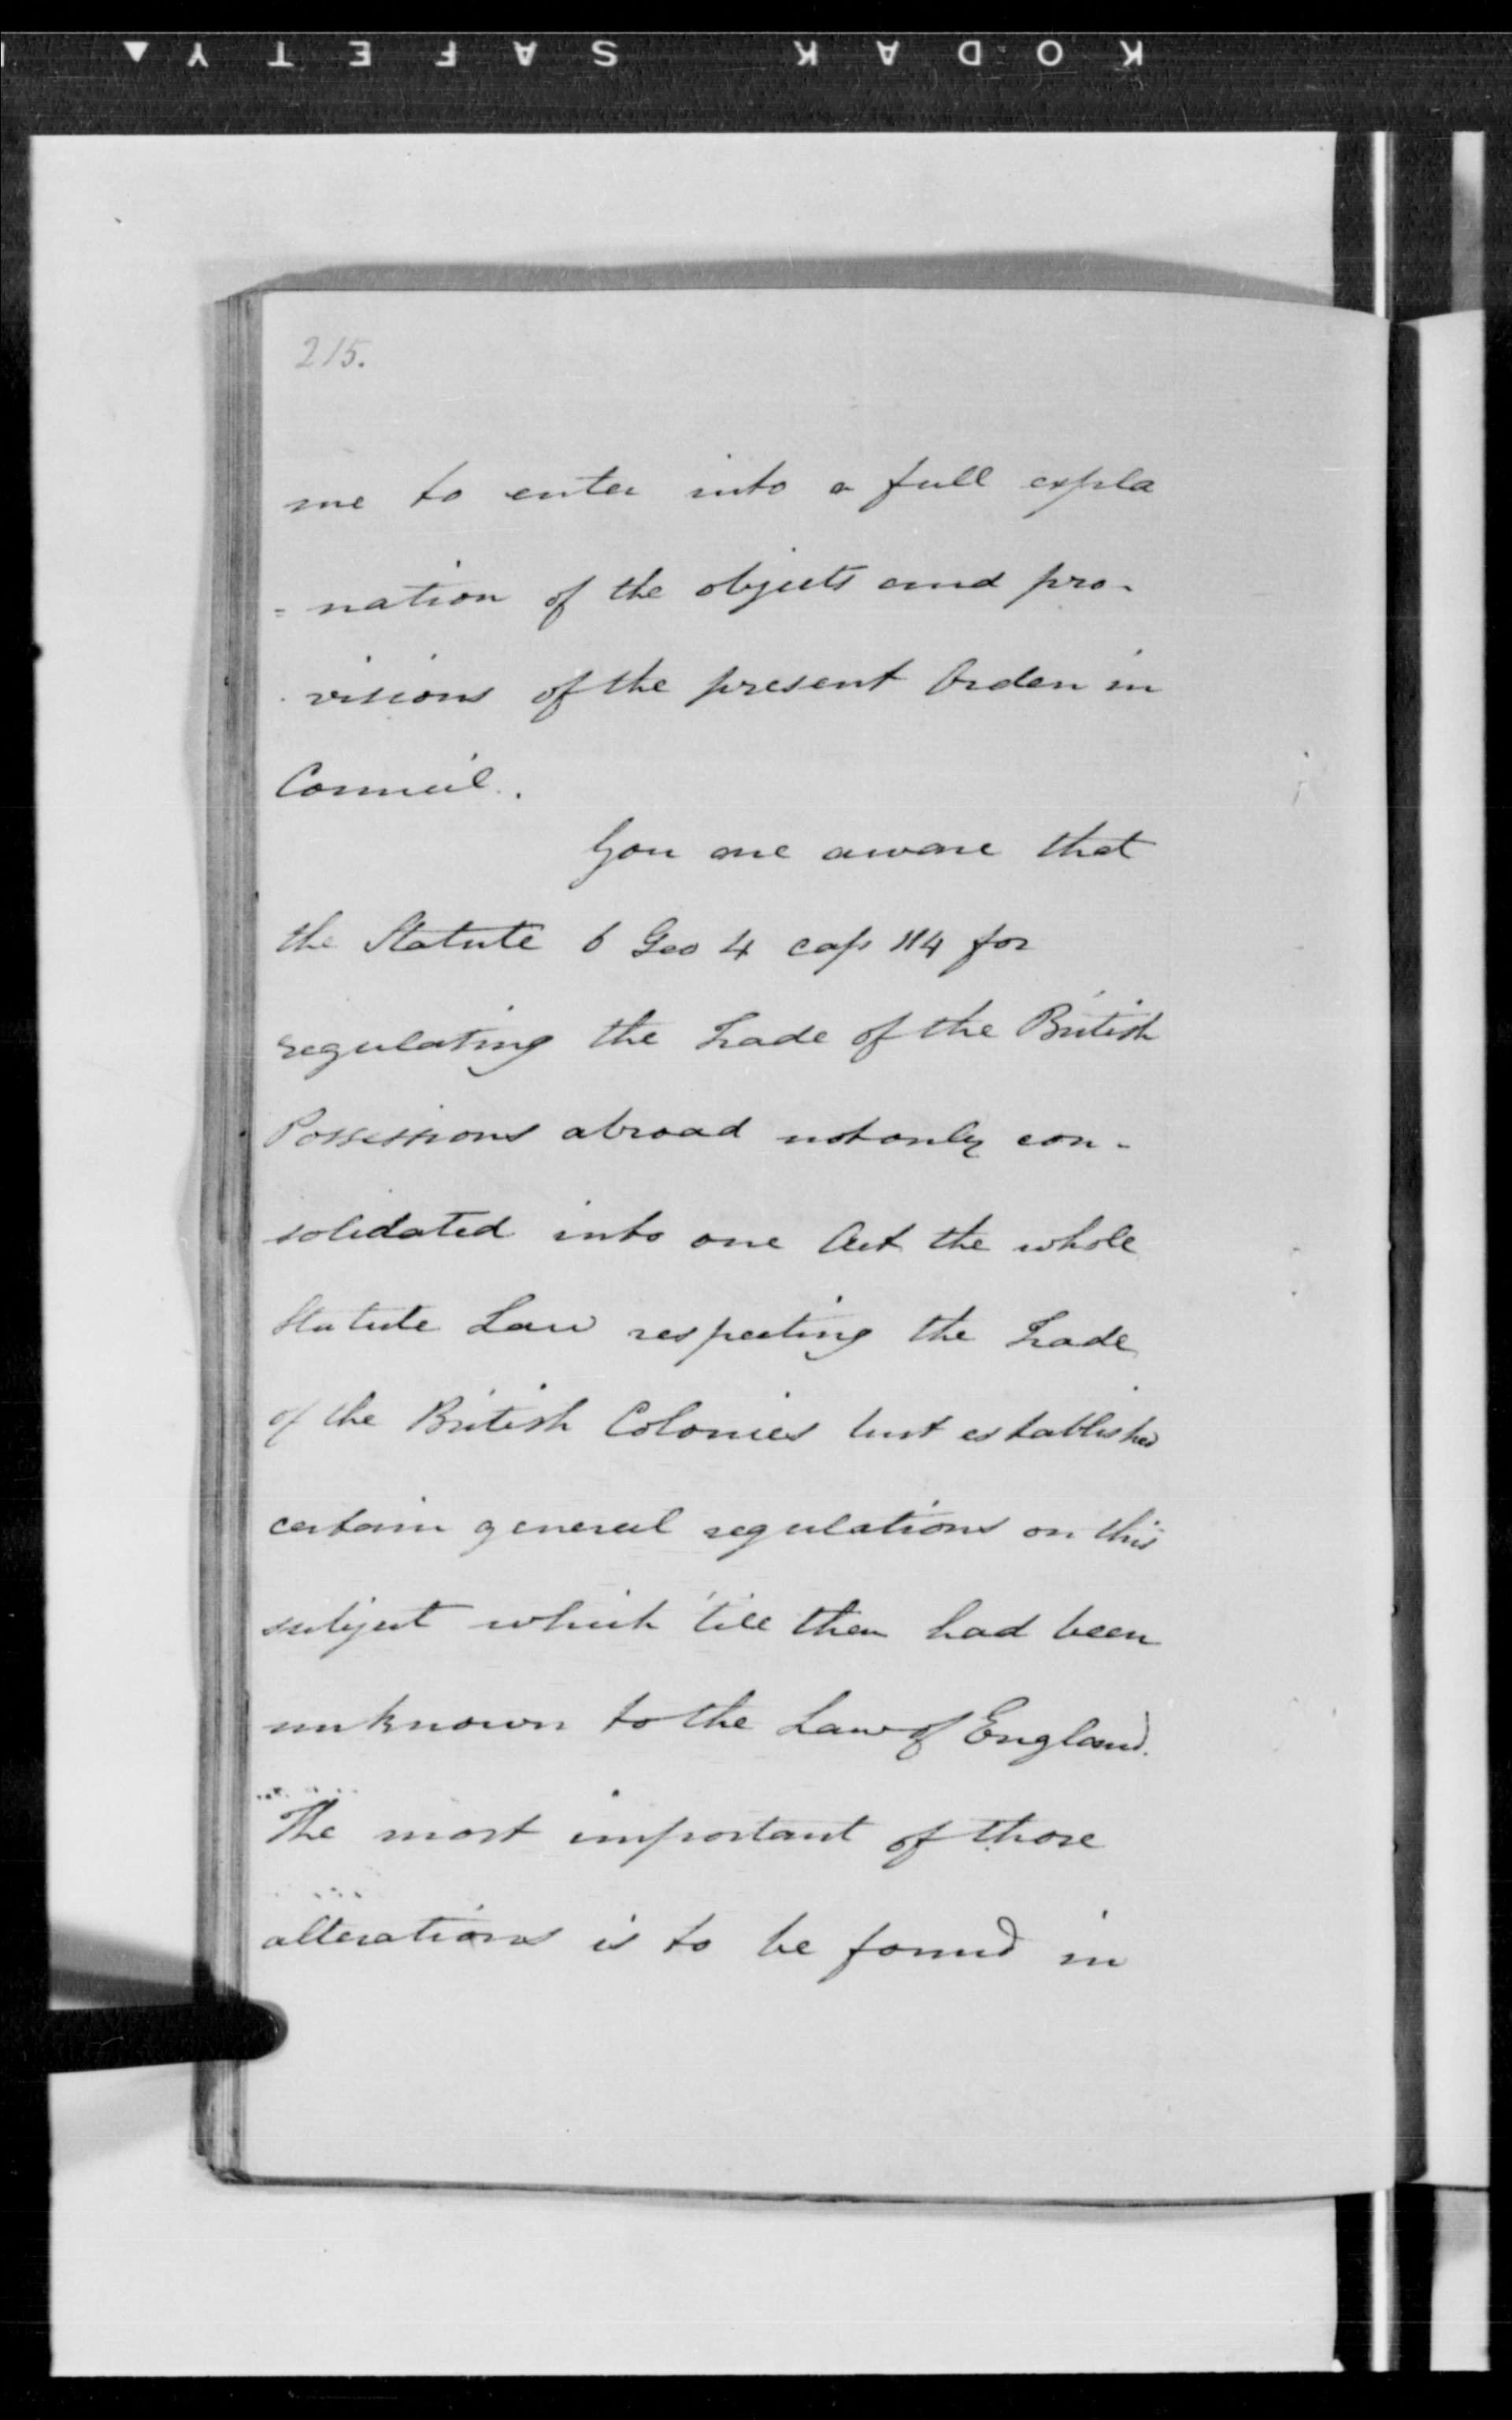 KODAK SAFETY
215.
me to enter into a full expla
= nation of the objects and pro-
visions of the present Order in
Council.
You are aware that
the Statute 6 Geo 4 cap 114 for
regulating the Trade of the British
Possessions abroad not only con-
solidated into one Act the whole
Statute Law respecting the Trade
of the British Colonies but established
certain general regulations on this
subject which 'till then had been
unknown to the Law of England.
The most important of those
alterations is to be found in